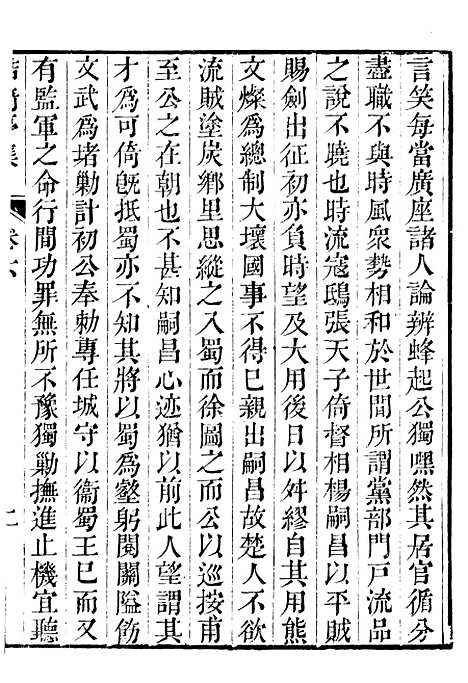 言笑每當廣座諸人論辨蜂起公獨嘿然其居官循分
盡職不與時風衆勢相和於世間所謂黨部門戸流品
之說不曉也時流寇鴟張天子倚督相楊嗣昌以平賊
賜劍出征初亦負時望及大用後日以舛繆自其用熊
文燦爲總制大壞國事不得已親出嗣昌故楚人不欲
流賊塗炭鄉里思縱之入蜀而徐圖之而公以巡按甫
至公之在朝也不甚知嗣昌心迹猶以前此人望謂其
才爲可倚旣抵蜀亦不知其將以蜀爲壑躬閱關隘飭
文武爲堵勦計初公奉勅專任城守以衞蜀王已而又
有監軍之命行間功罪無所不豫獨勦撫進止機宜聽
卷六